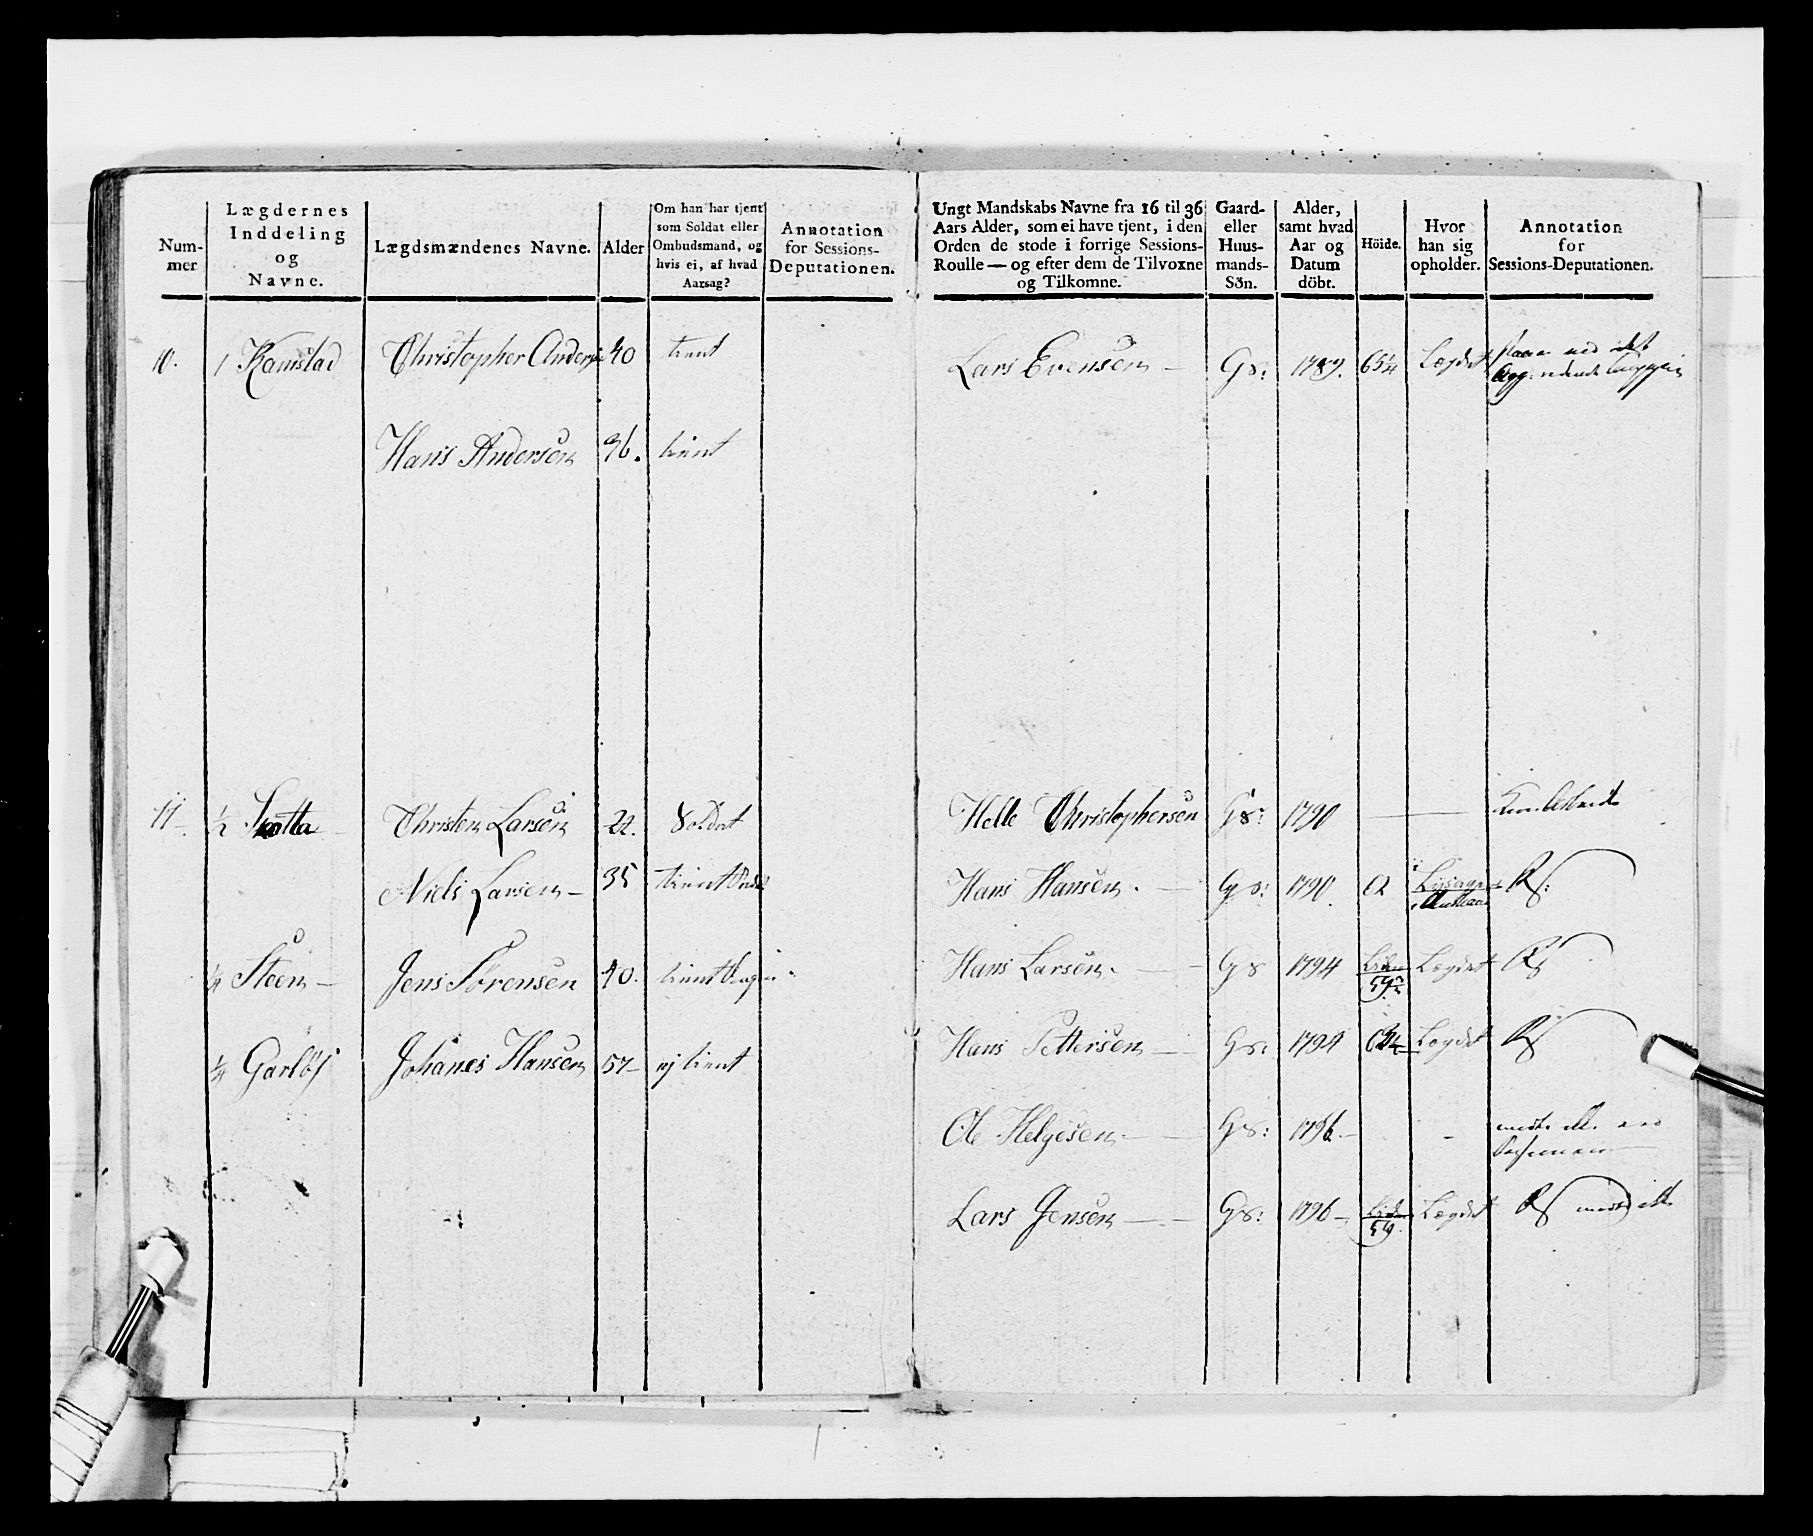 Num-
mer
Lægdernes
Inddeling
og
Navne.
Lægdsmændenes Navne.
Alder
Om han har tjent
som Soldat eller
Ombudsmand, og
hvis ei, af hvad
Aarsag?
Annotation
for Sessions-
Deputationen.
10. 1 Ramstad Christopher Anders 40 tient
Hans Andersen 36. tient
11 ½ Christen Larsen 22. Soldat
Niels Larsen 35 tient
¼ Steen Jens Sörensen 40. tient
¼ Garlös Johanes Hansen 57 ej tient
Ungt Mandskabs Navne fra 16 til 36
Aars Alder, som ei have tjent, i den
Orden de stode i forrige Sessions-
Roulle — og efter dem de Tilvoxne
og Tilkomne.
Gaard-
eller
Huus-
mands-
Sön.
Alder,
samt hvad
Aar og
Datum
döbt.
Höide.
Hvor
han sig
opholder.
Annotation
for
Sessions-Deputationen.
Lars Evensen — Gs: 1789. Lægdet
Helle Christophersen Gs: 1790 —
Hans Hansen. — Gs: 1790. 62
Hans Larsen. — Gs 1794 Lægdet
59
Hans Pettersen — Gs: 1794 Lægdet
Ole Helgesen — Gs: 1796. —
Lars Jensen — Gs: 1796 — Lægdet
59